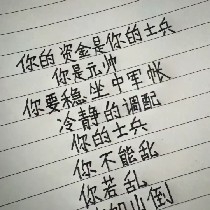 你的资金是你的士兵
你是元帅
你要稳坐中军帐
冷静的调配
你的士兵
你不能乱
你若乱
如山倒